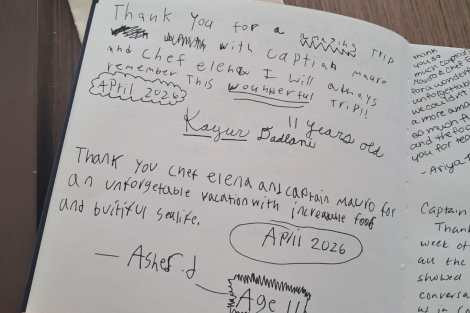 Thank you for a amazing trip
with Captian Mauro
and Chef elena I will always
remember This wounherful Trip!!
April 2026
11 years old
Kayur Dadlani
Thank you Chef elena and captain Mauro for
an unforgetable vacation with increauble food
and buitiful sealife.
April 2026
— Asher.d
Age 11
think
you so
much capta
for a wonder
unforgettab
we could n
a more am
so much f
and the fo
you for tea
- Ariya
Captain
Than
week of
all the
showed
conversa